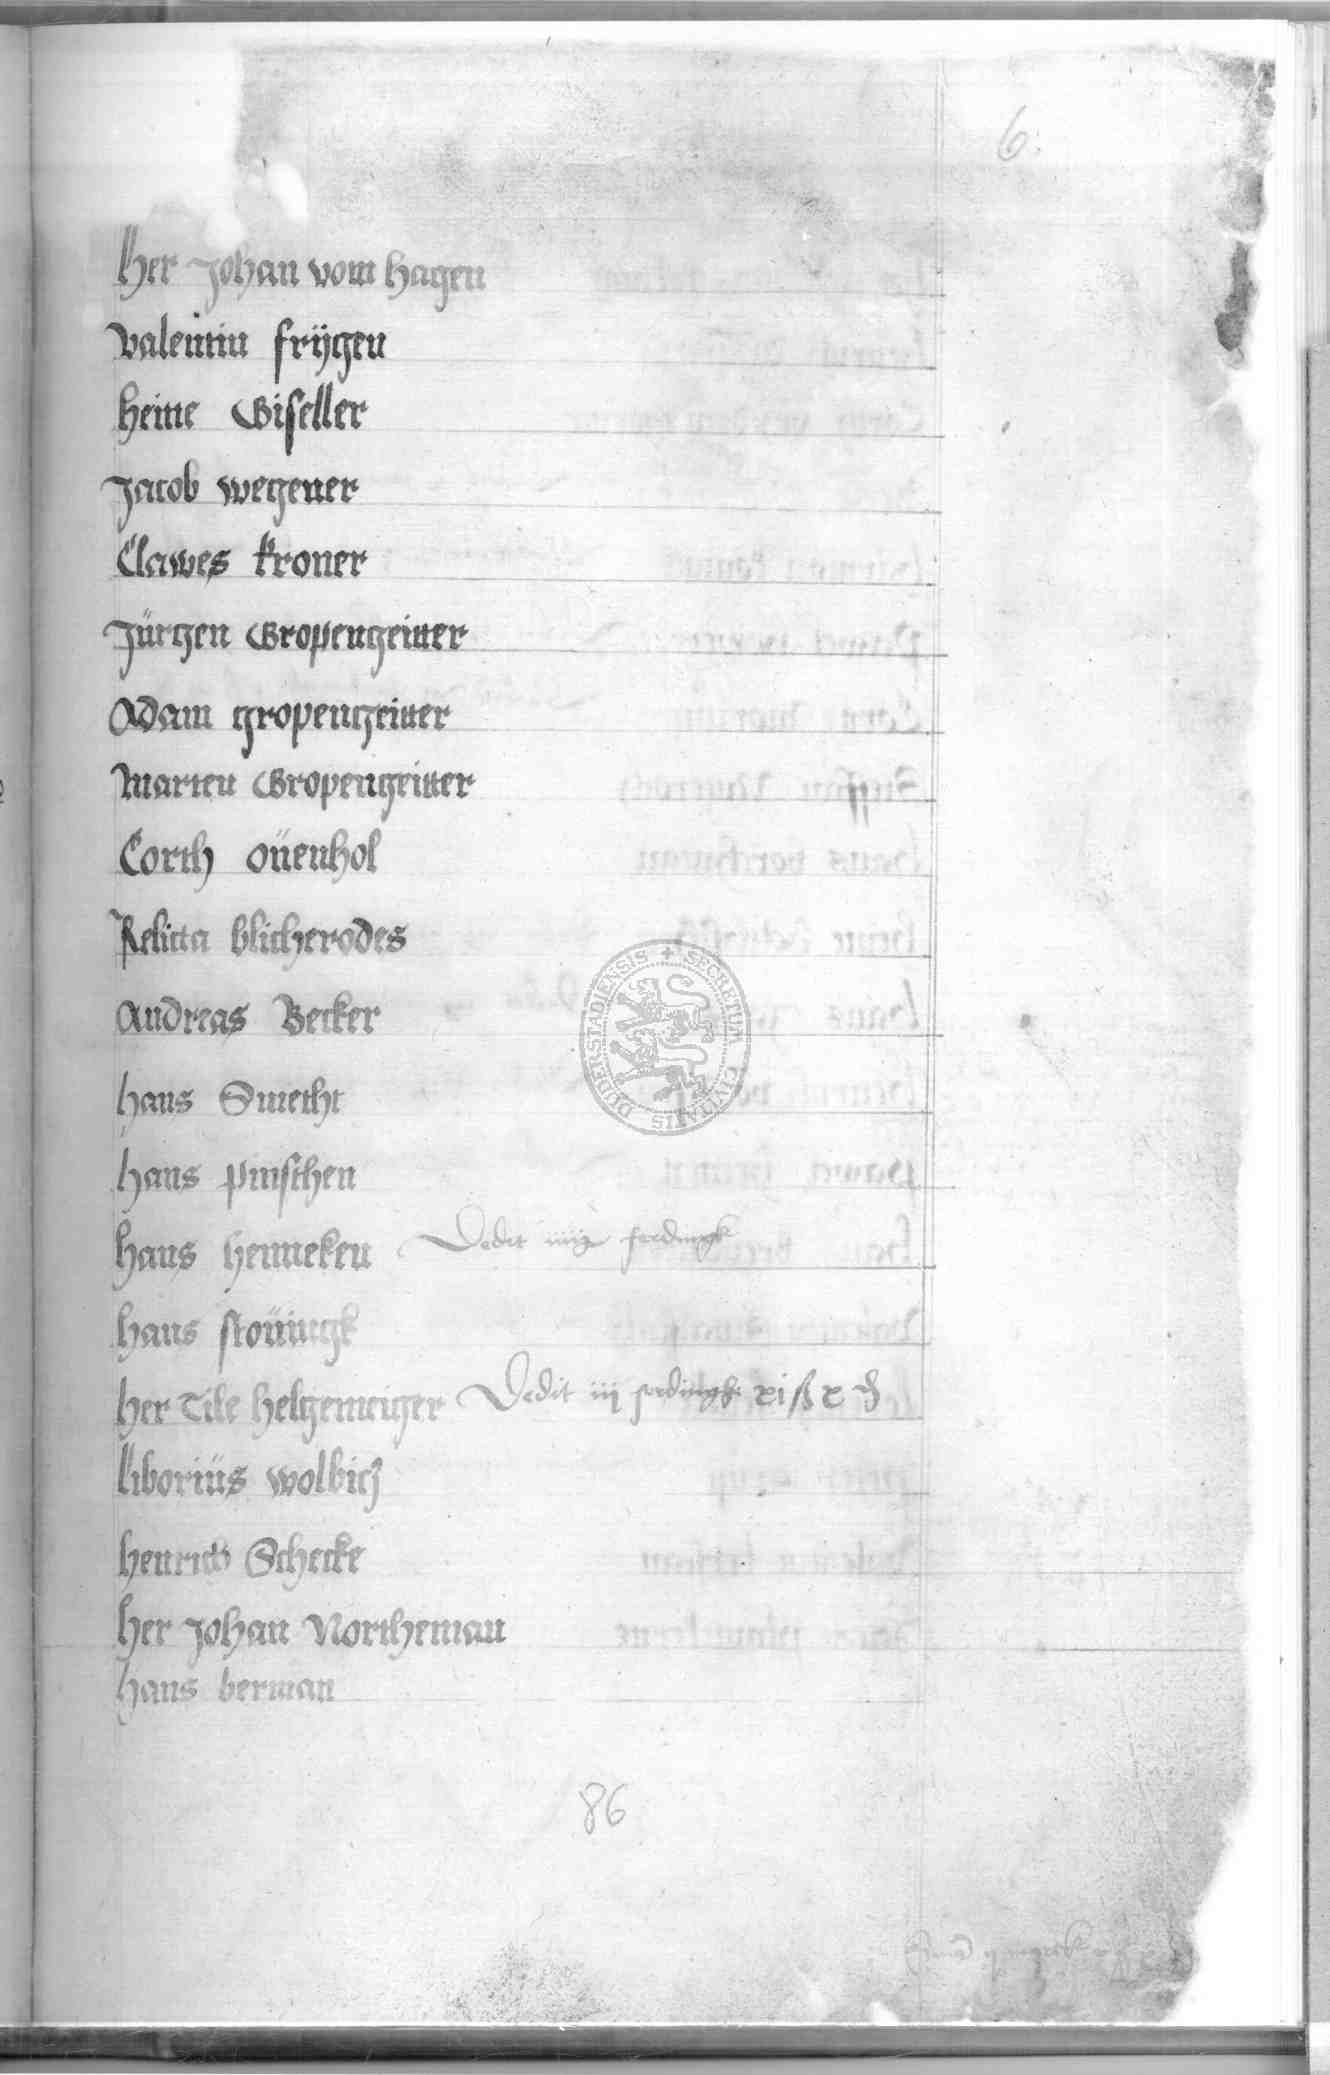 6.
Her Johan vom Hagen
Valentin frÿgen
Heine Giseller
Jacob wegener
Clawes kroner
Jürgen Gropengeitter
Adam gropengeitter
Marten Gropengeitter
Corth oüenhol
Relicta blicherodes
Andreas Becker
Hans Smecht
Hans pinschen
Hans Henneken Dedit iiij ferdingk
Hans stoüingk
Her Tile Helgemeiger Dedit iij ferdingk xi ß x ₰
Liboriüs wolbicz
Henrich Schecke
Her Johan Northeman
Hans berman
86
SECRETUM CIVITATIS DUDERSTADIENSIS